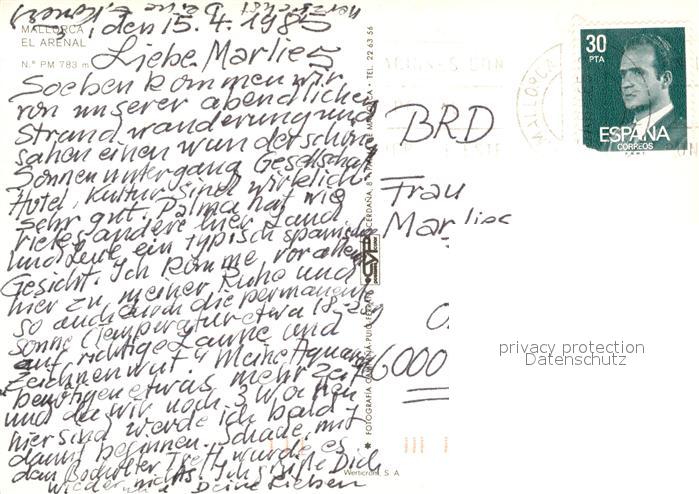 MALLORCA
EL ARENAL
N.º PM 783 m
, den 15.4.1985
Liebe Marlies
Soeben kommen wir
von unserer abendlichen
Strandwanderung und
sahen einen wunderschönen
Sonnenuntergang Gesellschaft
Hotel, Kultur sind wirklich
sehr gut. Palma hat wie
vieles andere hier Land
und Leute ein typisch spanisches
Gesicht. Ich komme, vor allem
hier zu meiner Ruhe und
so auch durch die permanente
Sonne (Temperatur etwa 18-
auf richtige Laune und
Zeichnenwut." Meine Aquar
benötigen etwas mehr Zeit
und da wir noch 3 Wochen
hier sind werde ich bald
damit beginnen. Schade, mit
dem Bocholter Treff wurde es
wieder nichts. Ich grüße Dich
Deine Lieben
FOTOGRAFÍA CAMPAÑÁ-PUIG FERRAN
CYP
TEL. 22 63 56
30
PTA
ESPAÑA
CORREOS
MALLORCA
BRD
Frau
Marlies
6000
Werticrom, S. A.
privacy protection
Datenschutz